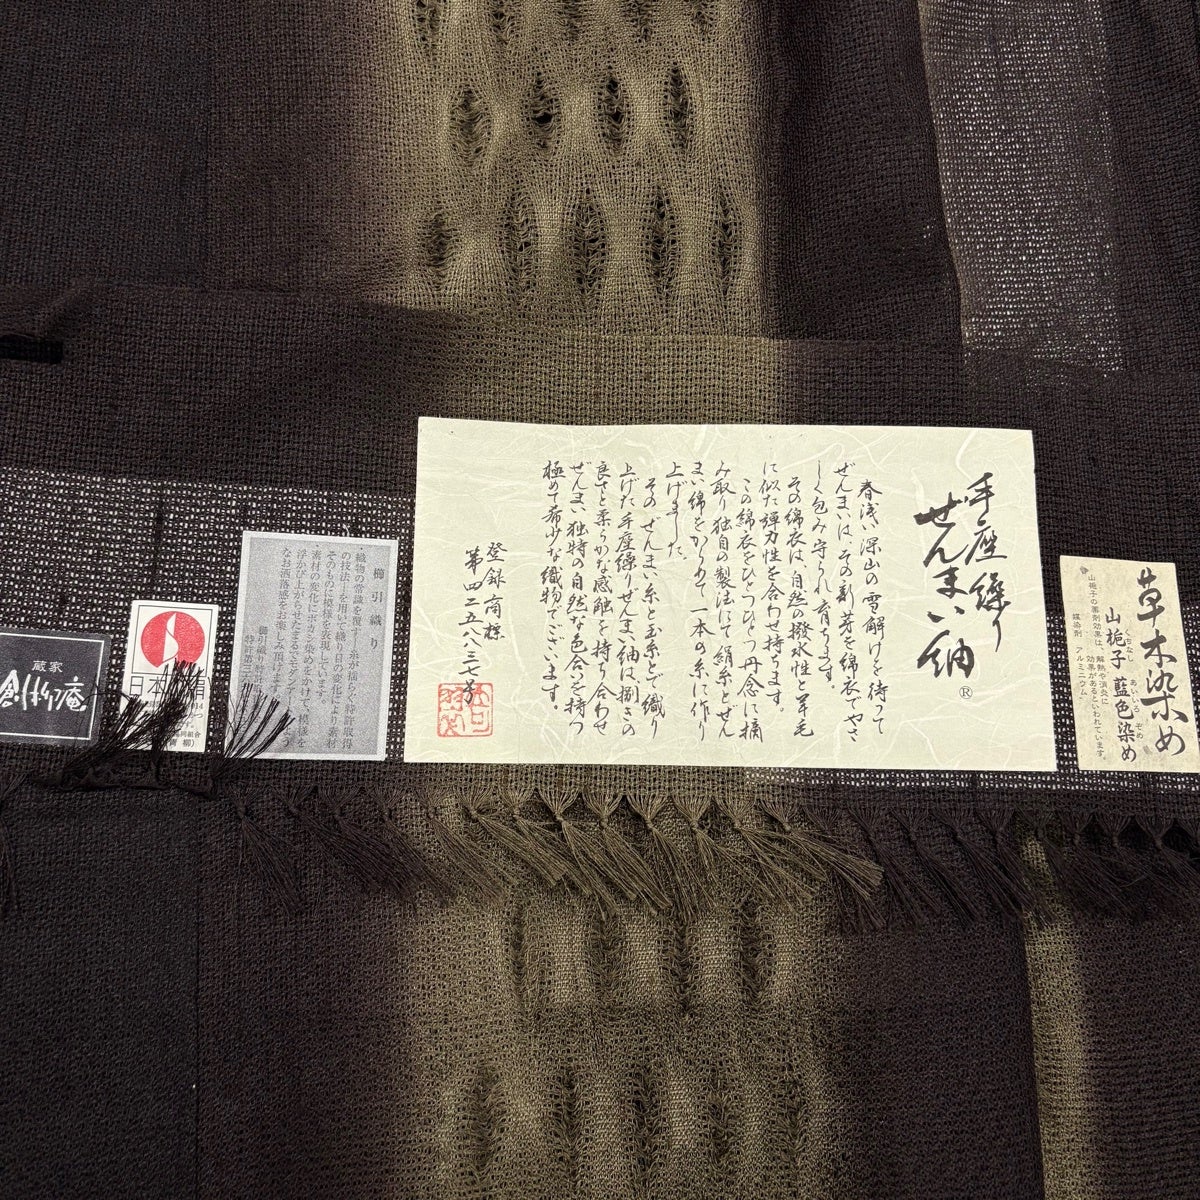 手座繰り
ぜんまい紬®
春浅い深山の雪解けを待って
ぜんまいは、その新芽を綿衣でやさ
しく包み守られ育ちます。
その綿衣は、自然の撥水性と羊毛
に似た弾力性を合わせ持ちます。
この綿衣をひとつひとつ丹念に摘
み取り独自の製法にて絹糸とぜん
まい綿をからめて一本の糸に作り
上げました。
そのぜんまい糸と玉糸とで織り
上げた手座繰りぜんまい紬は捌きの
良さと柔らかな感触を持ち合わせ
ぜんまい独特の自然な色合いを持つ
極めて希少な織物でございます。
登録商標
第四二五八八三七号
草木染め
山梔子 藍色染め
くちなし あいいろ ぞめ
山梔子の薬剤効果は、解熱や消炎に
効果があるといわれています。
媒染剤 アルミニウム
櫛引織り
織物の常識を覆す！糸が揺らぐ特許取得
の技法」を用いて織り目の変化により素材
そのものに模様を表現しています。
素材の変化にボカシ染めを付けて、模様を
浮かび上がらせたまるでそよ
なお洒落感をお楽しみ頂けます
櫛引織り特許
特許第三
日本
組合
蔵家